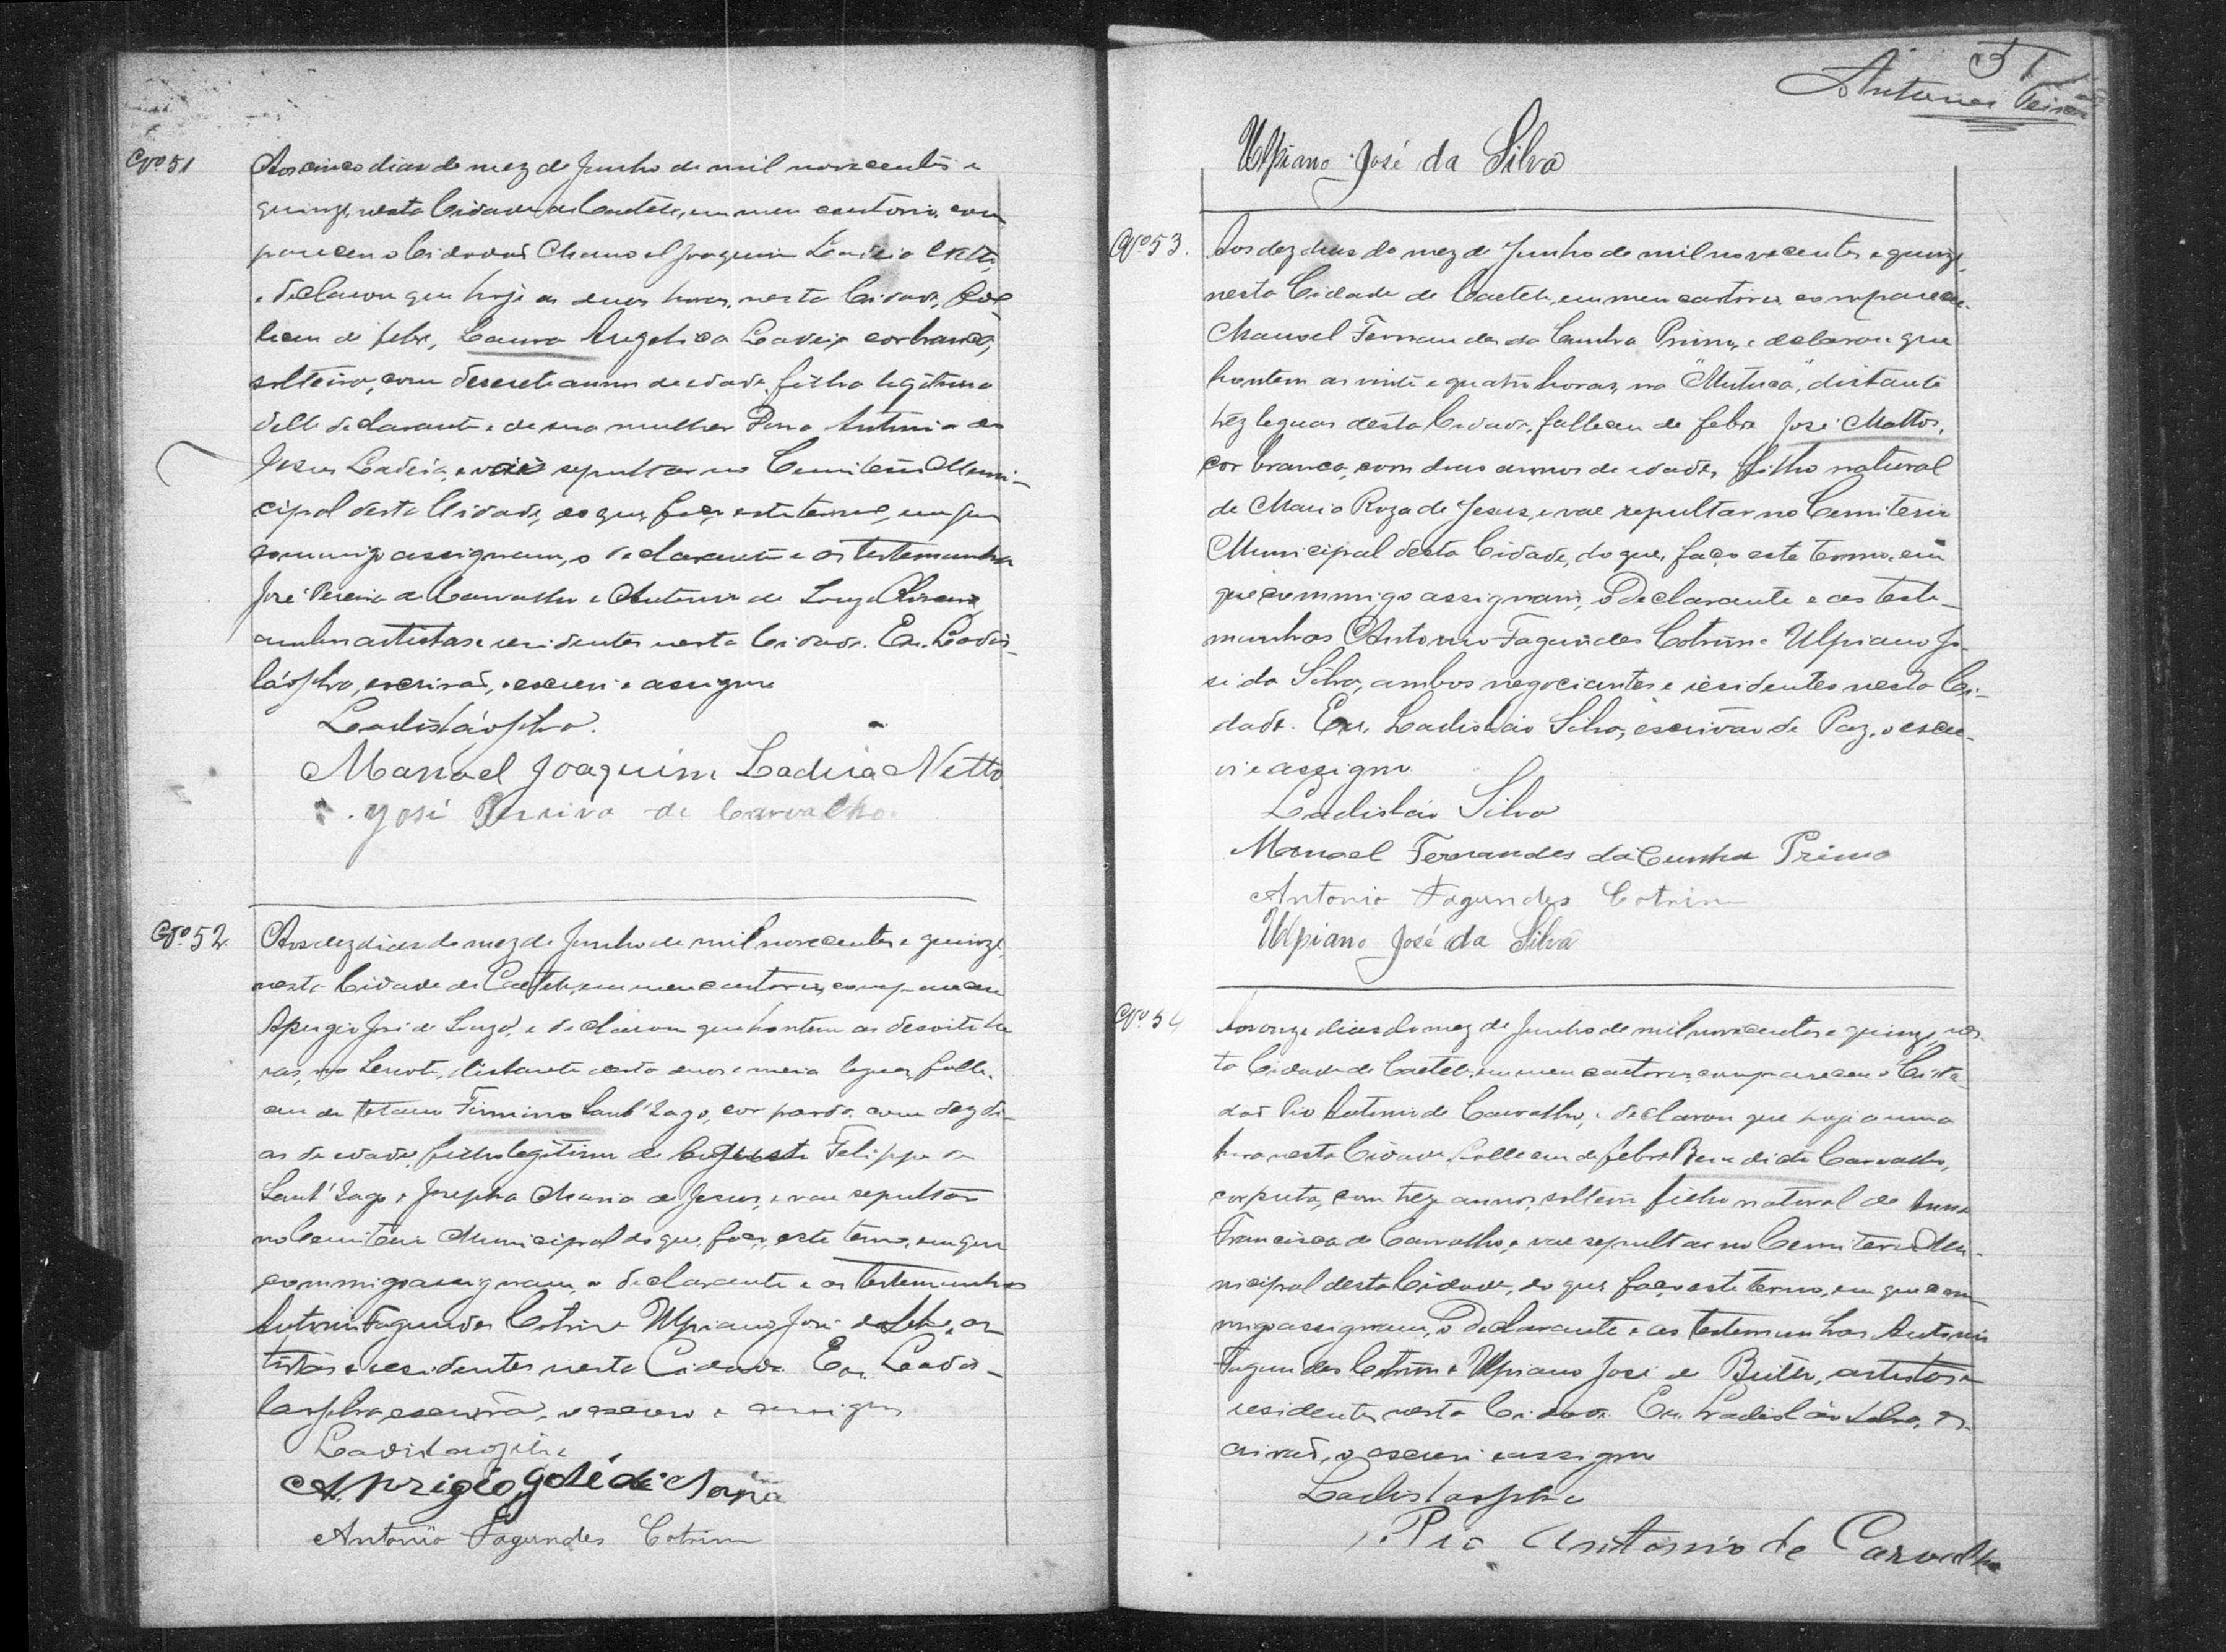 Nº 51
Aos cinco dias do mez de Junho de mil novecentos e
quinze, nesta Cidade de Caeteté, em meu cartorio, com
pareceu o Cidadão Manoel Joaquim Ladeia Netto,
e declarou que hoje as duas horas, nesta Cidade, fal
leceu de febre, Laura Angelica Ladeia, cor branca,
solteira, com desesete annos de edade, filha legitima
delle declarante e de sua mulher Dona Antonia de
Jesus Ladeia, e vae sepultar no Cemiterio Muni-
cipal desta Cidade, do que, faço este termo, em que
commigo assignam, o declarante e as testemunhas
José Pereira de Carvalho e Antonio de Souza
ambos artistas e residentes nesta Cidade. Eu, Ladis-
láo Silva, escrivão, o escrevi e assigno
Ladisláo Silva.
Manoel Joaquim Ladeia Netto.
José Pereira de Carvalho.
Nº 52.
Aos dez dias do mez de Junho de mil novecentos e quinze,
nesta Cidade de Caeteté, em meu cartorio, compareceu
Aprigio José de Souza, e declarou que hontem as desoito ho
ras, no distante desta duas e meia leguas, falle-
ceu de tetano Firmino Sant'Iago, cor parda, com dez di-
as de edade, filho legitimo de Felippe de
Sant'Iago e Josepha Maria de Jesus, e vae sepultar
no Cemiterio Municipal do que, faço, este termo, em que
commigo assignam, o declarante e as testemunhas
Antonio Fagundes Cotrim e Ulpiano José da Silva, ar
tistas e residentes nesta Cidade. Eu, Ladis-
lao Silva, escrivão, o escrevi e assigno
Ladislao Silva
Aprigio José de Souza
Antonio Fagundes Cotrim
51
Antunes
Ulpiano José da Silva
Nº 53.
Aos dez dias do mez de Junho de mil novecentos e quinze,
nesta Cidade de Caeteté, em meu cartorio, compareceu
Manoel Fernandes da Cunha Primo, e declarou que
hontem as vinte e quatro horas, na "Mutuca", distante
trez leguas desta Cidade, falleceu de febre José Mattos,
cor branca, com dous annos de edade, filho natural
de Maria Roza de Jesus, e vae sepultar no Cemiterio
Municipal desta Cidade, do que, faço este termo, em
que commigo assignam, o declarante e as teste-
munhas Antonio Fagundes Cotrim e Ulpiano Jo-
sé da Silva, ambos negociantes e residentes nesta Ci-
dade. Eu, Ladisláo Silva, escrivão de Paz, o escre-
vi e assigno
Ladisláo Silva
Manoel Fernandes da Cunha Primo
Antonio Fagundes Cotrim
Ulpiano José da Silva
Nº 54
Aos onze dias do mez de Junho de mil novecentos e quinze, nes-
ta Cidade de Caeteté, em meu cartorio, compareceu o Cida-
dão Pio Antonio de Carvalho, e declarou que hoje a uma
hora nesta Cidade, falleceu de febre Benedicto Carvalho,
cor preta, com treze annos, solteiro filho natural de Anna
Francisca de Carvalho, e vae sepultar no Cemiterio Mu-
nicipal desta Cidade, do que, faço este termo, em que com
migo assignam, o declarante e as testemunhas Antonio
Fagundes Cotrim e Ulpiano José de Britto, artistas e
residentes nesta Cidade. Eu, Ladisláo Silva, es-
crivão, o escrevi e assigno
Ladislao Silva
Pio Antonio de Carvalho